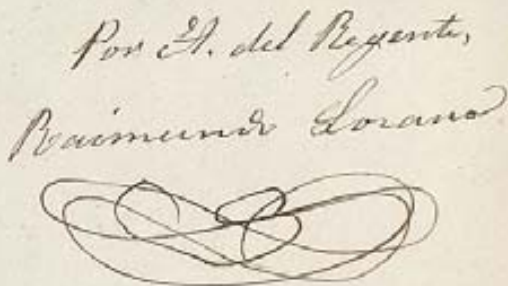 Por A. del Regente,
Raimundo Lozano